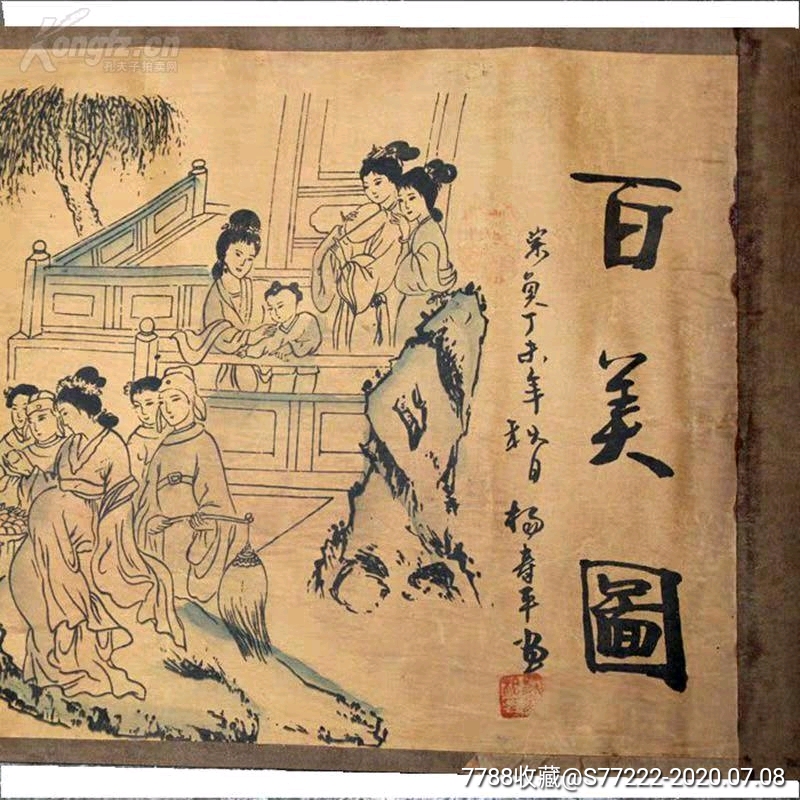 Kongfz.cn
孔夫子拍卖网
百美图
崇貞丁未年秋日楊寿平画
7788收藏@S77222-2020.07.08